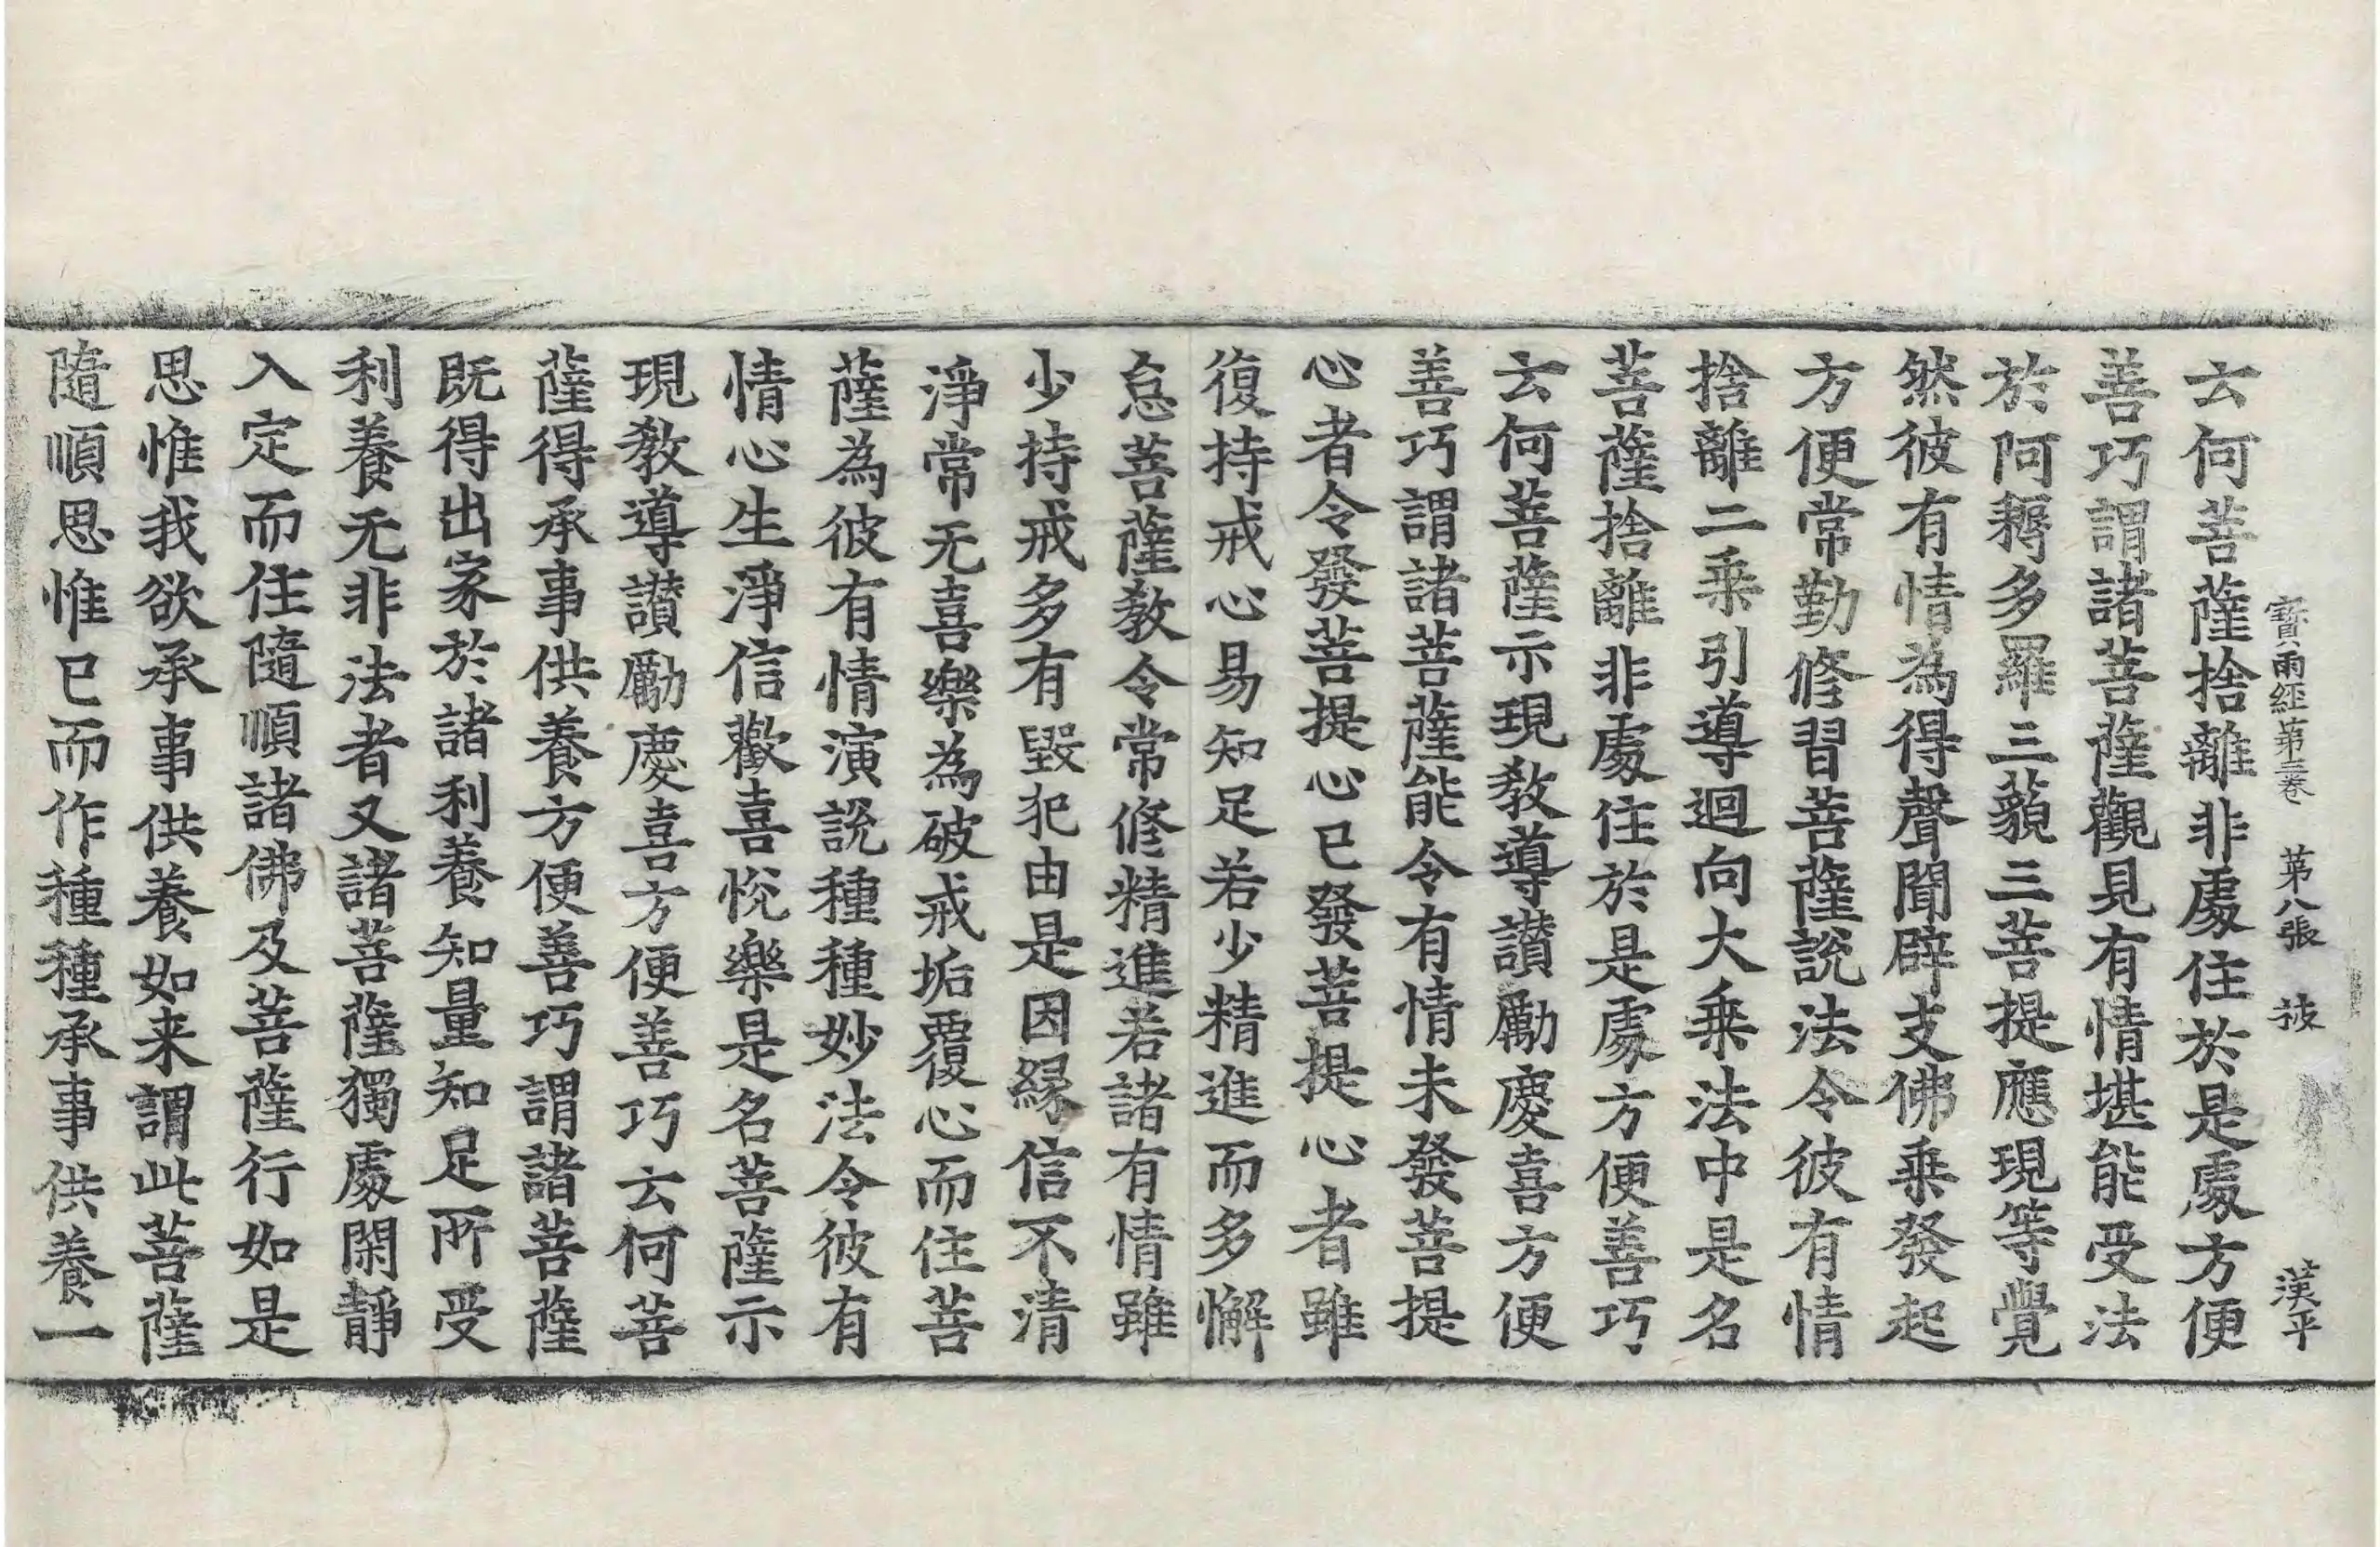 寶雨經第三卷 第八張 𧙕 漢平
云何菩薩捨離非處住於是處方便
善巧謂諸菩薩觀見有情堪能受法
於阿耨多羅三藐三菩提應現等覺
然彼有情為得聲聞辟支佛乗發起
方便常勤修習菩薩說法令彼有情
捨離二乗引導迴向大乗法中是名
菩薩捨離非處住於是處方便善巧
云何菩薩示現教導讃勵慶喜方便
善巧謂諸菩薩能令有情未發菩提
心者令發菩提心已發菩提心者雖
復持戒心易知足若少精進而多懈
怠菩薩教令常修精進若諸有情雖
少持戒多有毀犯由是因緣信不清
淨常无喜樂為破戒垢覆心而住菩
薩為彼有情演說種種妙法令彼有
情心生淨信歡喜悅樂是名菩薩示
現教導讃勵慶喜方便善巧云何菩
薩得承事供養方便善巧謂諸菩薩
既得出家於諸利養知量知足所受
利養无非法者又諸菩薩獨處閑靜
入定而住隨順諸佛及菩薩行如是
思惟我欲承事供養如来謂此菩薩
隨順思惟已而作種種承事供養一